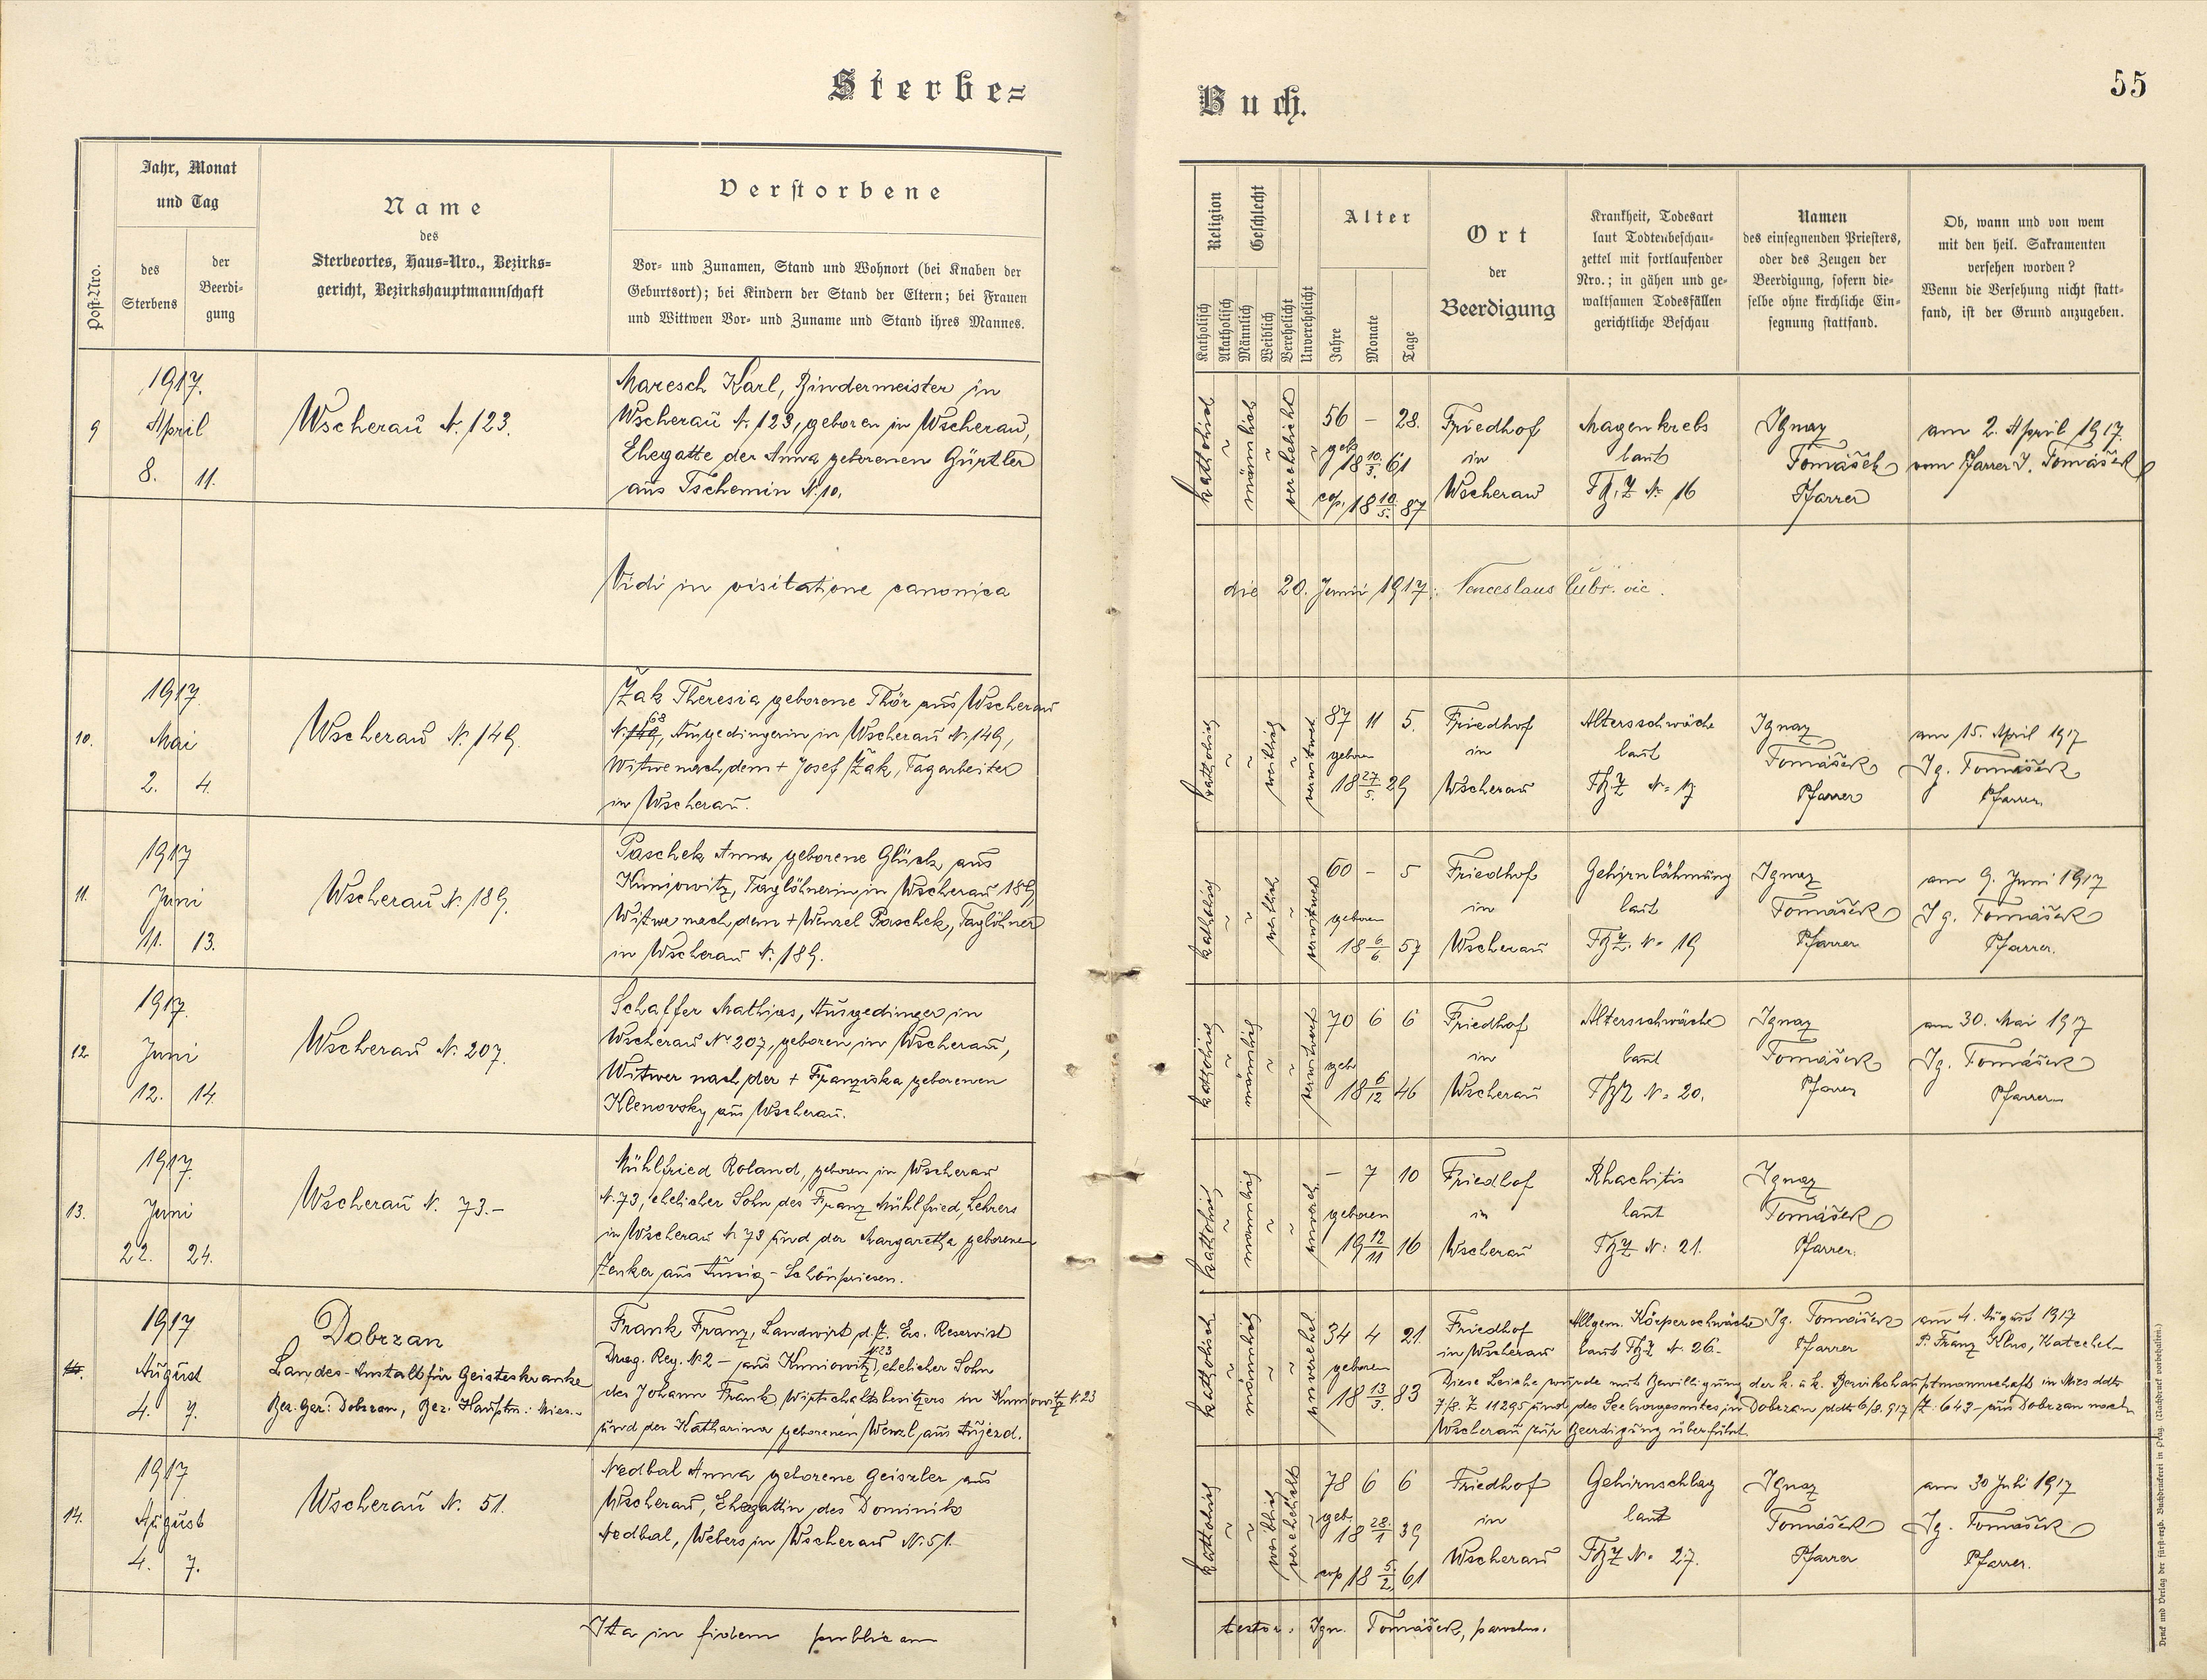 Sterbe=
Buch.
55
Post-Nro.
Jahr, Monat
und Tag
des
Sterbens
der
Beerdi-
gung
Name
des
Sterbeortes, Haus=Nro., Bezirks=
gericht, Bezirkshauptmannschaft
Verstorbene
Vor- und Zunamen, Stand und Wohnort (bei Knaben der
Geburtsort); bei Kindern der Stand der Eltern; bei Frauen
und Wittwen Vor- und Zuname und Stand ihres Mannes.
Religion
Katholisch
Akatholisch
Geschlecht
Männlich
Weiblich
Verehelicht
Unverehelicht
Alter
Jahre
Monate
Tage
Ort
der
Beerdigung
Krankheit, Todesart
laut Todtenbeschau-
zettel mit fortlaufender
Nro.; in gähen und ge-
waltsamen Todesfällen
gerichtliche Beschau
Namen
des einsegnenden Priesters,
oder des Zeugen der
Beerdigung, sofern die-
selbe ohne kirchliche Ein-
segnung stattfand.
Ob, wann und von wem
mit den heil. Sakramenten
versehen worden?
Wenn die Versehung nicht statt-
fand, ist der Grund anzugeben.
9
1917.
April
8. 11.
Wscherau N. 123.
Maresch Karl, Bindermeister in
Wscherau N. 123, geboren in Wscherau,
Ehegatte der Anna geborenen Gürtler
aus Tschemin N. 10.
katholisch
männlich
verehelicht
56 – 28.
geb. 18 10/3. 61
cop. 18 10/5. 87
Friedhof
in
Wscherau
Magenkrebs
laut
TbZ N. 16
Ignaz
Tomášek
Pfarrer
am 2. April 1917.
vom Pfarrer I. Tomášek
Vidi in visitatione canonica
die 20. Junii 1917: Venceslaus vic.
10.
1917.
Mai
2. 4.
Wscherau N. 149.
Žak Theresia geborene Thör aus Wscherau
N. 149, 68 Ausgedingerin in Wscherau N. 149,
Witwe nach dem + Josef Žak, Tagarbeiter
in Wscherau.
katholisch
weiblich
verwitwet
87 11 5.
geboren
18 27/5. 29
Friedhof
in
Wscherau
Altersschwäche
laut
TbZ N. 17
Ignaz
Tomášek
Pfarrer
am 15. April 1917
Ig. Tomášek
Pfarrer.
11.
1917
Juni
11. 13.
Wscherau N. 189.
Paschek Anna geborene Glück aus
Kuniowitz, Taglöhnerin in Wscherau 189,
Witwe nach dem + Wenzel Paschek, Taglöhner
in Wscherau N. 189.
katholisch
weiblich
verwitwet
60 – 5
geboren
18 6/6 57
Friedhof
in
Wscherau
Gehirnlähmung
laut
TbZ. N. 19
Ignaz
Tomášek
Pfarrer
am 9. Juni 1917
Ig. Tomášek
Pfarrer.
12
1917.
Juni
12. 14.
Wscherau N. 207.
Schaffer Mathias, Ausgedinger in
Wscherau N. 207, geboren in Wscherau,
Witwer nach der + Franziska geborenen
Klenovsky aus Wscherau.
katholisch
männlich
verwitwet
70 6 6
geb
18 6/12 46
Friedhof
in
Wscherau
Altersschwäche
laut
TbZ N. 20.
Ignaz
Tomášek
Pfarrer
am 30. Mai 1917
Ig. Tomášek
Pfarrer
13.
1917.
Juni
22. 24.
Wscherau N. 73.–
Mühlfried Roland, geboren in Wscherau
N. 73, ehelicher Sohn des Franz Mühlfried, Lehrers
in Wscherau N. 73 und der Margaretha geborenen
Zenker aus Aussig-Schönpriesen.
katholisch
männlich
– 7 10
geboren
19 12/11 16
Friedhof
in
Wscherau
Rhachitis
laut
TbZ N: 21.
Ignaz
Tomášek
Pfarrer.
1917
August
4. 7.
Dobrzan
Landes-Anstalt für Geisteskranke
Bez. Ger: Dobrzan, Bez. Hauptm: Mies.–
Frank Franz, Landwirt d.Z. Ers. Reservist
Drag. Reg. N. 2 – aus Kuniowitz N. 23, ehelicher Sohn
des Johann Frank, Wirtschaftsbesitzers in Kuniowitz N. 23
und der Katharina geborenen Wenzl aus Aujezd.
katholisch
männlich
unverehel
34 4 21.
geboren
18 13/3. 83
Friedhof
in Wscherau
Allgem. Körperschwäche
laut TbZ N. 26.–
Ig. Tomášek
Pfarrer
am 4. August 1917
P. Franz Klus, Katechet
Diese Leiche wurde mit Bewilligung der k. u k. Bezirkshauptmannschaft in Mies ddto
7/8. Z 11295 und des Seelsorgeamtes in Dobrzan ddto 6/8. 917 Z: 643 – aus Dobrzan nach
Wscherau zur Beerdigung überführt.
14.
1917
August
4. 7.
Wscherau N. 51.
Nedbal Anna geborene Geiszler aus
Wscherau, Ehegattin des Dominik
Nedbal, Webers in Wscherau N. 51.
katholisch
weiblich
verehelicht
78 6 6
geb. 18 28./1 39
cop 18 5/2. 61
Friedhof
in
Wscherau
Gehirnschlag
laut
TbZ N. 27.
Ignaz
Tomášek
Pfarrer
am 30 Juli 1917
Ig. Tomášek
Pfarrer.
Ita in fidem publicam
testor. Ign. Tomášek, parochus.
Druck und Verlag der fürst-erzb. Buchdruckerei in Prag. (Nachdruck vorbehalten.)